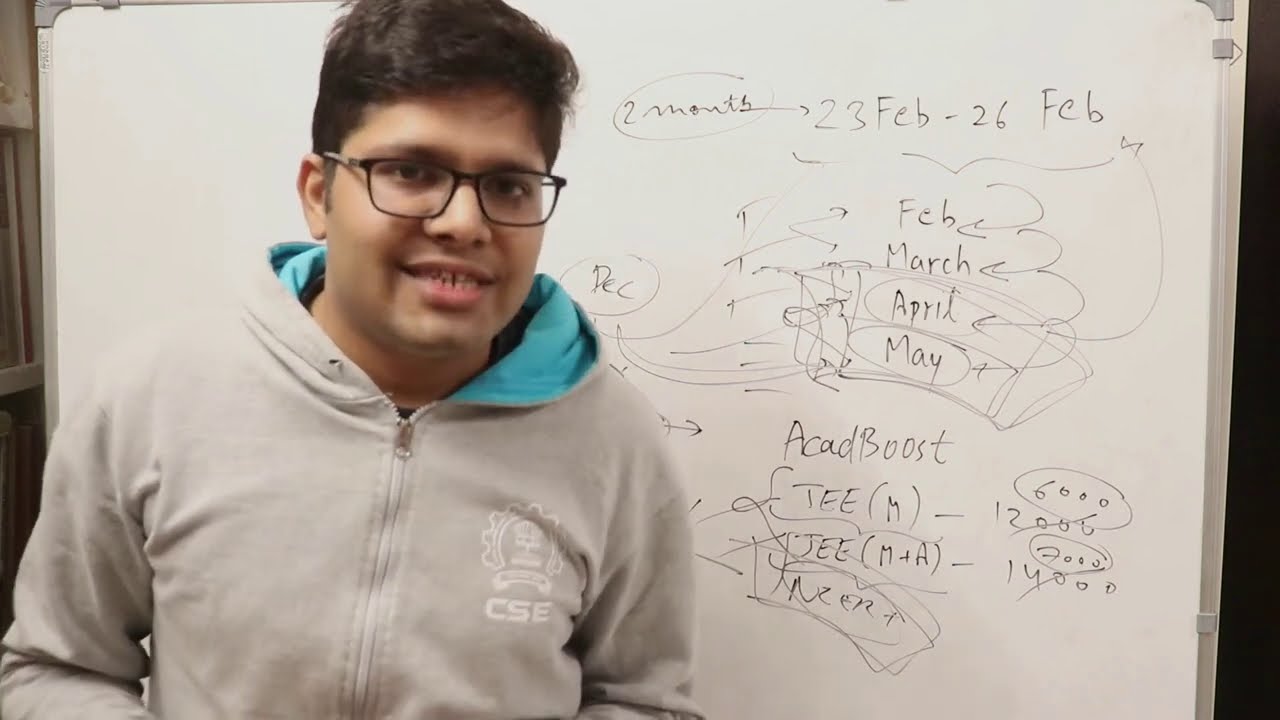 2 month → 23 Feb - 26 Feb
Feb
March
Dec
April
May
→ AcadBoost
JEE (M) - 12000 6000
JEE (M+A) - 14000 7000
CSE